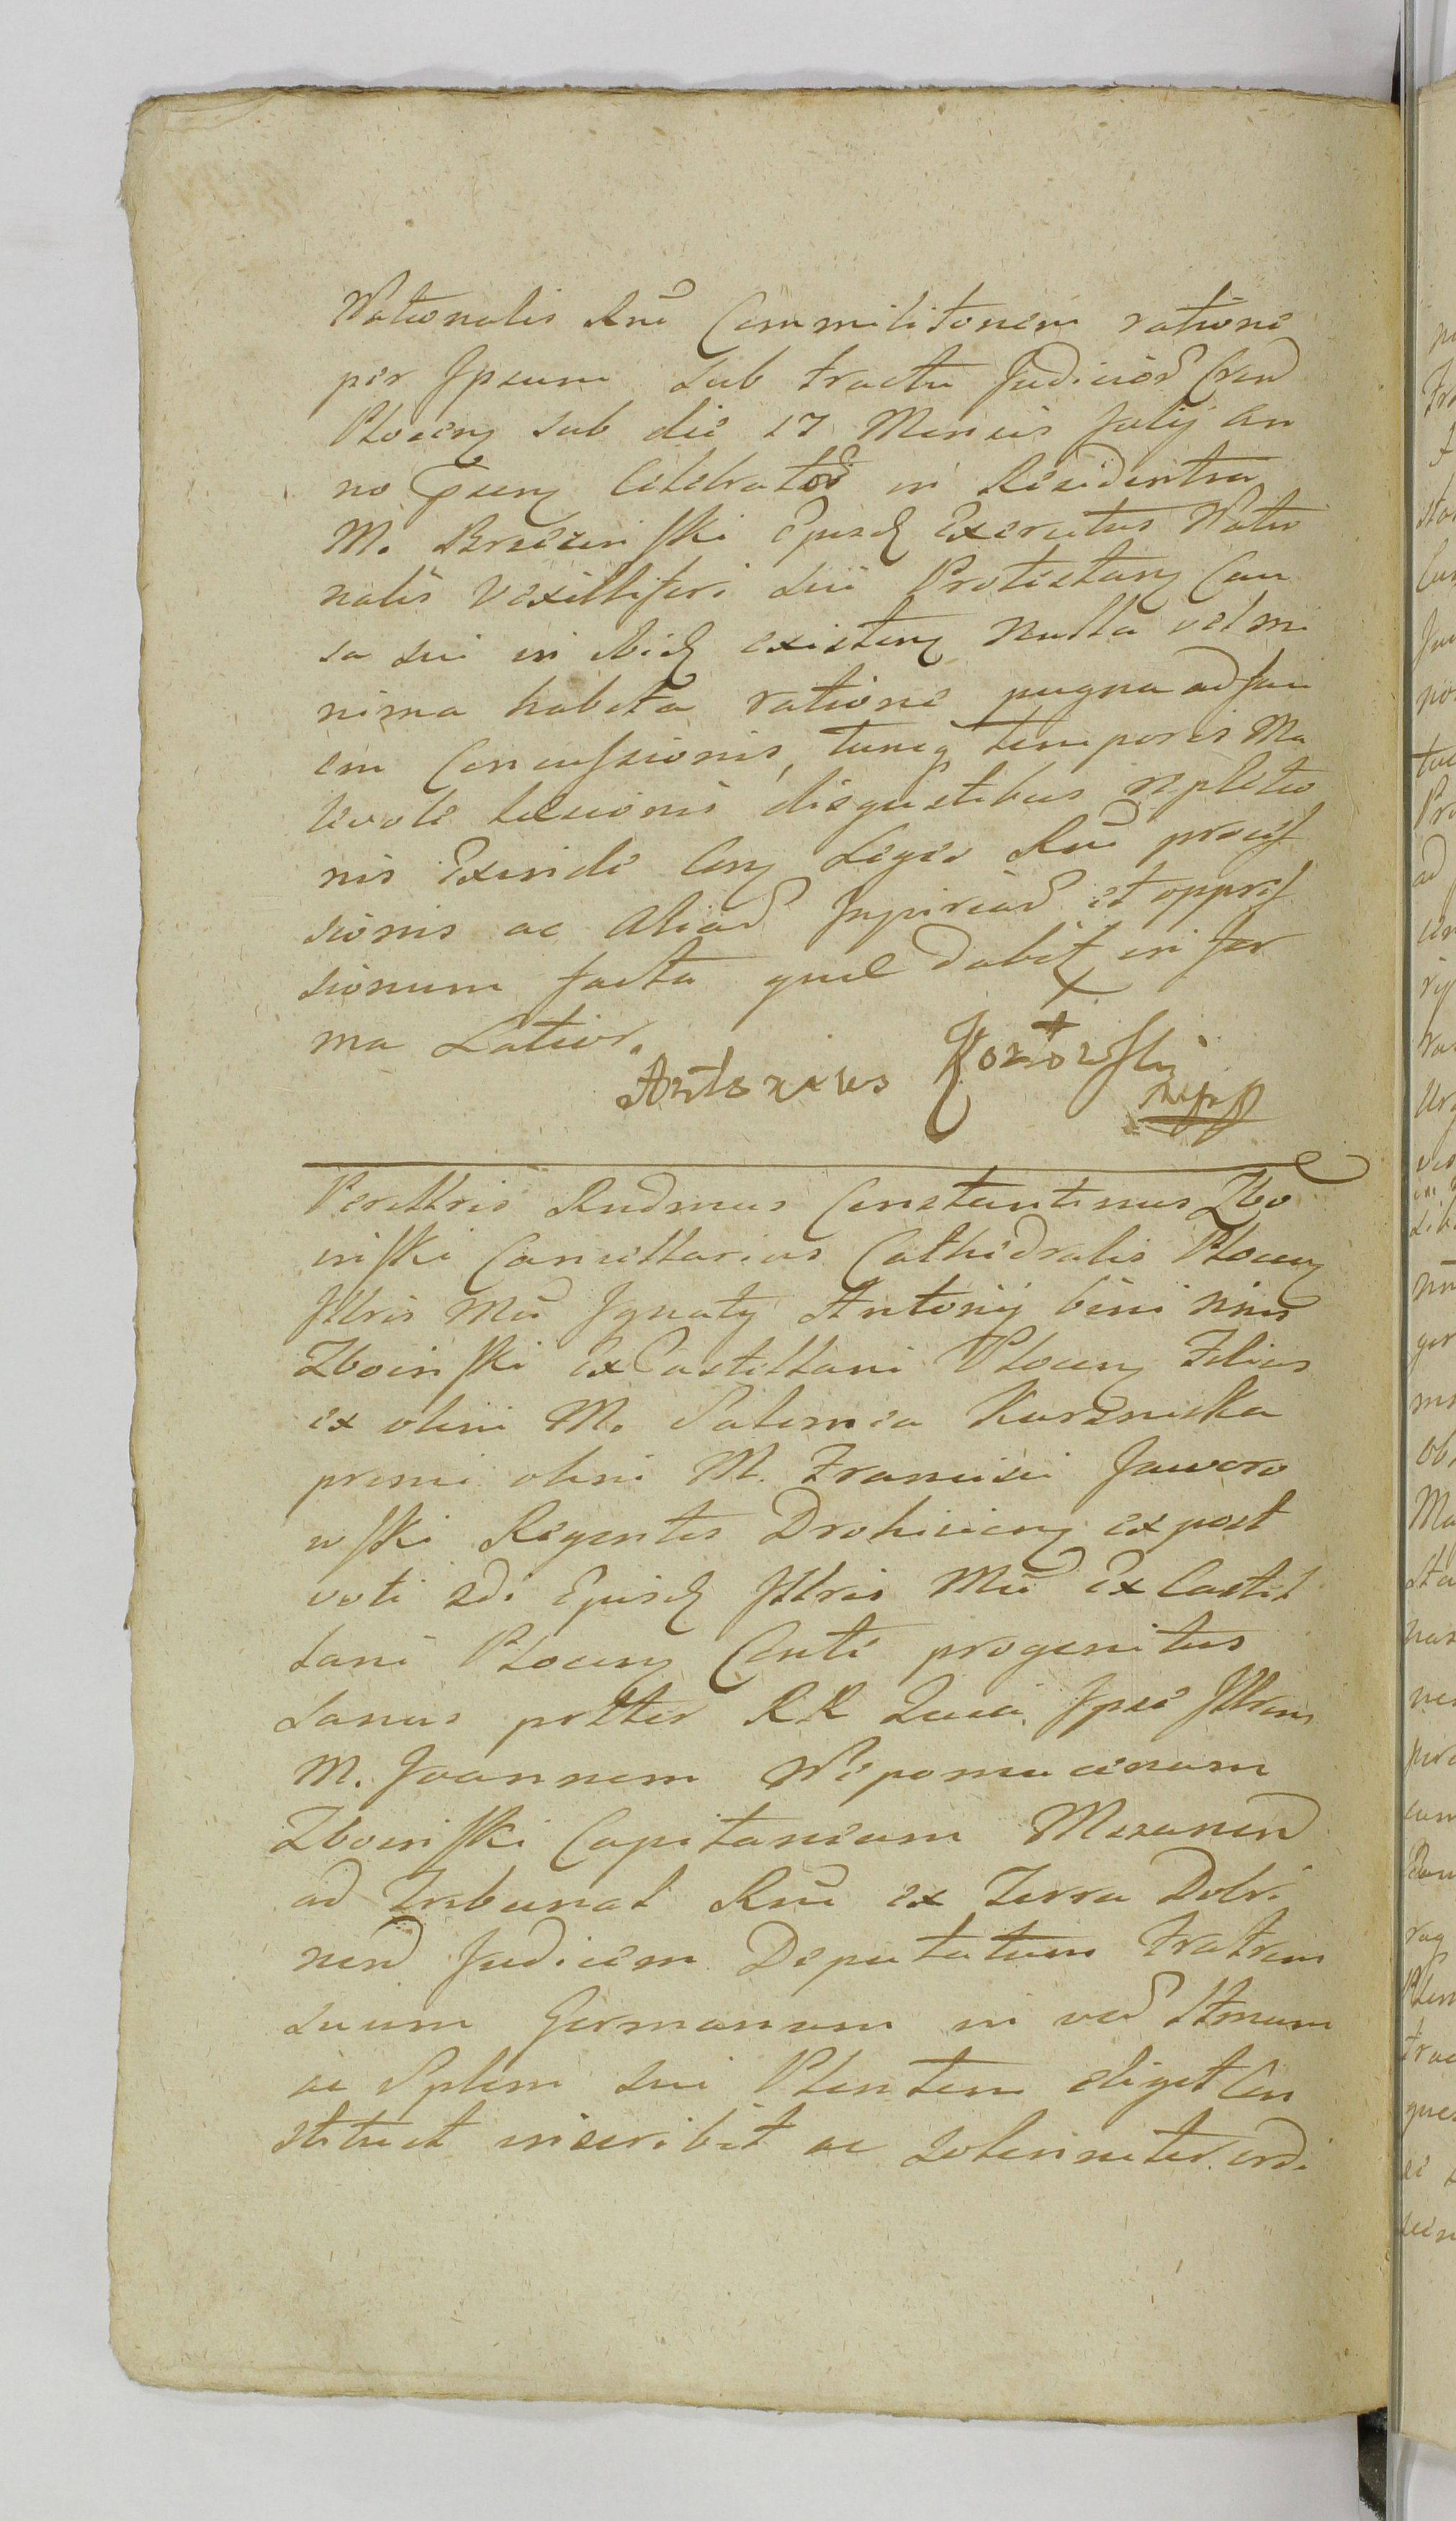 Nationalis Rni Commilitonem ratione
per Ipsum sub tractu Judicior Cren
Plocen sub die 17 Mensis Julij An
no Psen Celebrator in Residentia
M. Brzezin ski Ejusd Exercitus Natio
nalis Vexilliferi sui Protestan Cau
sa sui in ibid existen Nulla vel mi
nima habita ratione pugna ad fau
em Concussionis, tuncq temporis Ma
levole laesionis disgustibus repletio
nis Exinde Con Leges Rni process
sionis ac aliar Injuriar et oppres
sionum facta quae dabit in for
ma Latior.
Antonius Kossowski
mpp
Perillris Rndmus Constantinus Zbo
inski Cancellarius Cathedralis Plocen
Illris Mci Ignaty Antonij bini nnis
Zboin ski Ex Castellani Plocen Filius
ex olim M. Salomea Karznicka
primi olim M. Francisci Jaworo
wski Regentis Drohicien ex post
voti 2di Ejusd Illris Mci Ex Castel
lani Plocen Conte progenitus
Sanus pntter RR Quia Ipse Illrem
M. Joannem Nepomucenum
Zboinski Capitaneum Mszanen
ad Tribunal Rni ex Terra Dobri
nen Judicem Deputatum Fratrem
suum Germanum in ver Ittmum
ac Splem sui Plentem eliget Con
stituet inscribit ac solenniter ordi